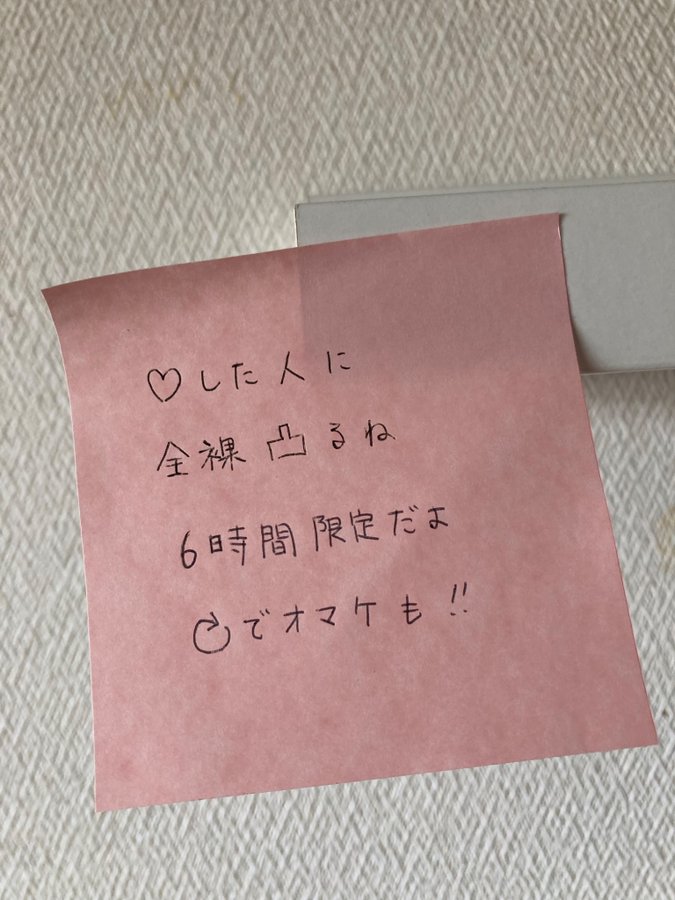 ♡した人に
全裸凸るね
6時間限定だよ
↻でオマケも!!